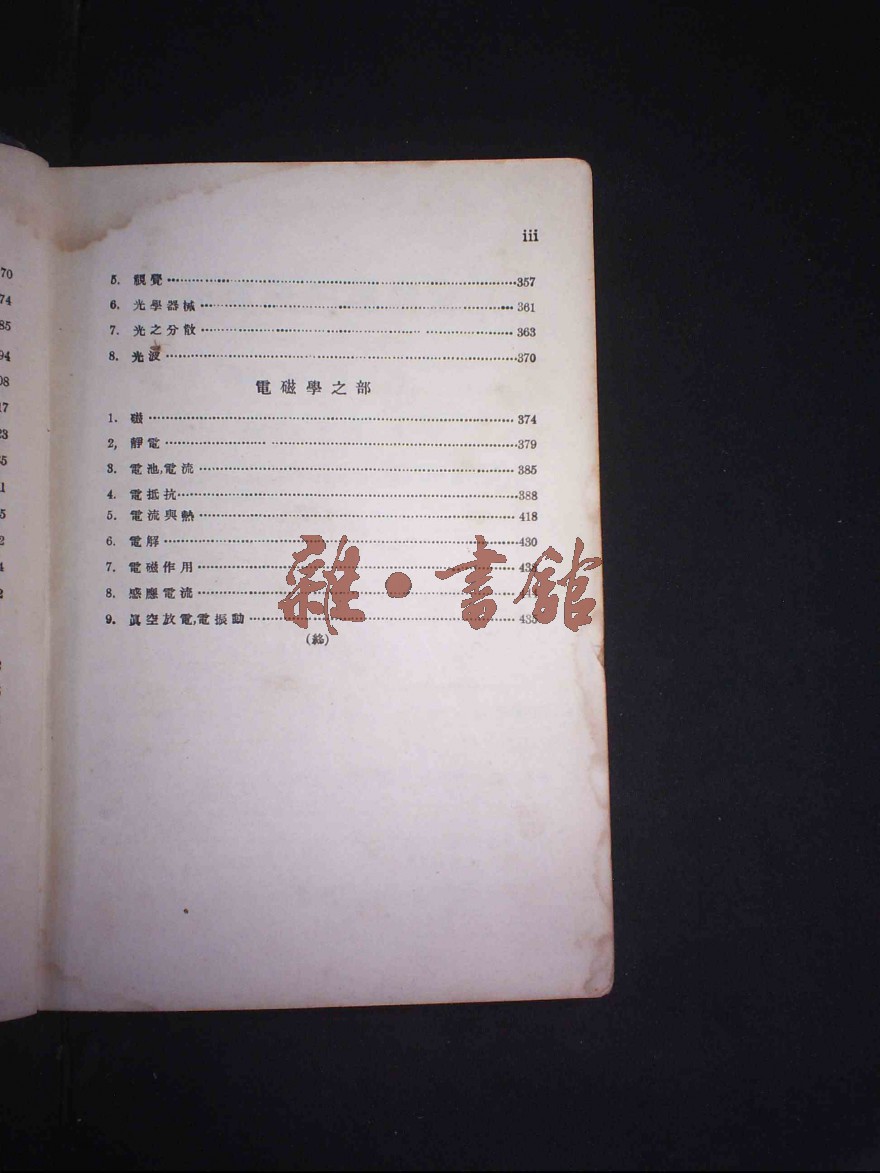 70
74
85
94
08
17
23
iii
5. 視覺 357
6. 光學器械 361
7. 光之分散 363
8. 光波 370
電磁學之部
1. 磁 374
2, 靜電 379
3. 電池,電流 385
4. 電抵抗 388
5. 電流與熱 418
6. 電解 430
7. 電磁作用
8. 感應電流
9. 眞空放電,電振動 435
(終)
雜·書館